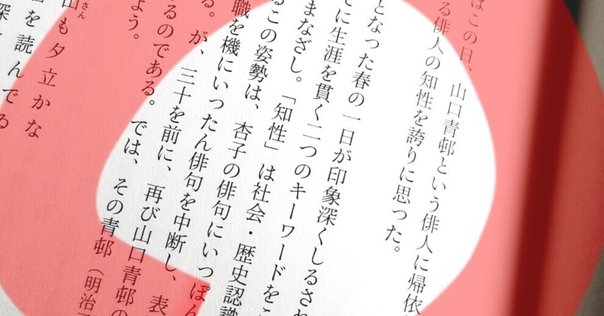 はこの日、山口青邨という俳人に帰依
る俳人の知性を誇りに思った。
となった春の一日が印象深くしるされ
でに生涯を貫く二つのキーワードをこ
まなざし。「知性」は社会・歴史認識
この姿勢は、杏子の俳句にいっぽん
職を機にいったん俳句を中断し、表
る。が、三十を前に、再び山口青邨の
るのである。では、その青邨（明治
よう。
山も夕立かな
さん
を読んでる